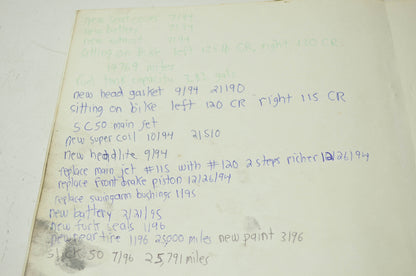 new 9/94
new battery 9/94
new 9/94
sitting on bike left 125 # CR, right 120 CR.
19769 miles
fuel tank capacity 3.82 gals
new head gasket 9/94 21190
sitting on bike left 120 CR right 115 CR
S.C50 main jet
new super coil 10/94 21510
new headlite 9/94
replace main jet #115 with #120 2 steps richer 12/26/94
replace front brake piston 12/26/94
replace swingarm bushings 1/95
new battery 2/21/95
new fork seals 1/96
new rear tire 1/96 25000 miles new paint 3/96
50 7/96 25,791 miles